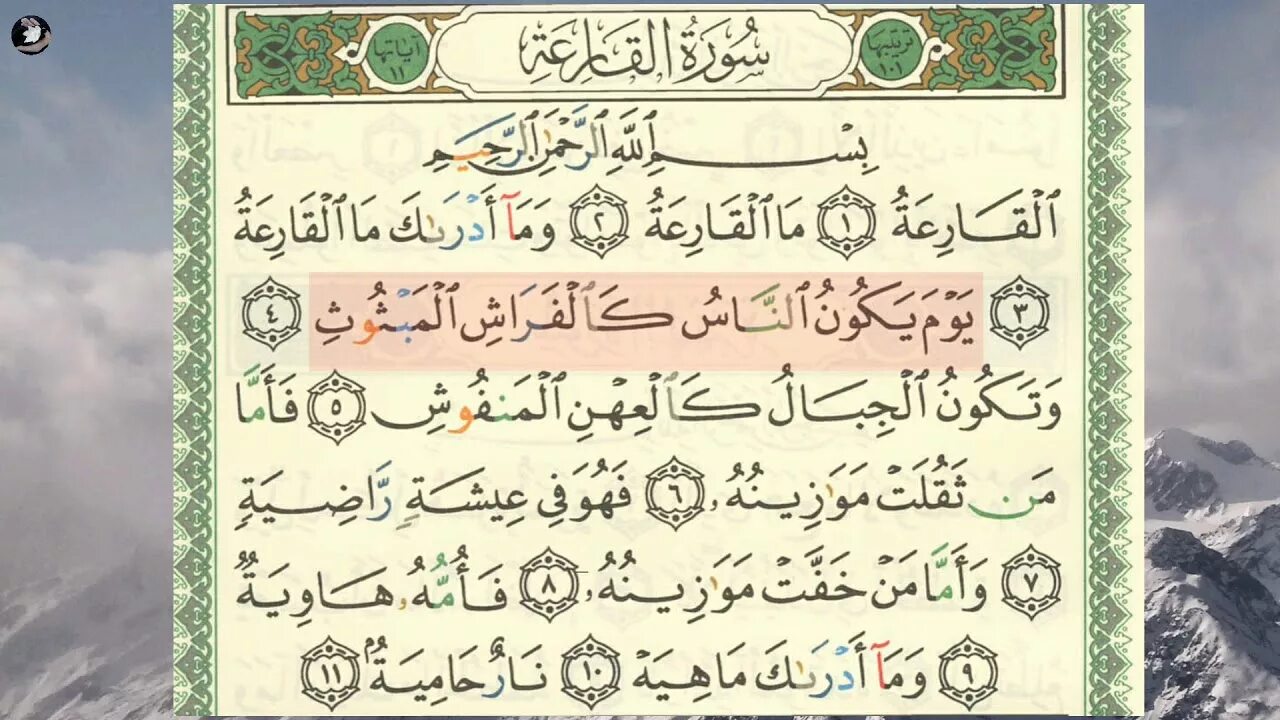 ترتيبها ١٠١ سُورَةُ القَارِعَةِ آياتها ١١
بِسْمِ ٱللَّهِ ٱلرَّحْمَٰنِ ٱلرَّحِيمِ
ٱلْقَارِعَةُ ١ مَا ٱلْقَارِعَةُ ٢ وَمَآ أَدْرَىٰكَ مَا ٱلْقَارِعَةُ
٣ يَوْمَ يَكُونُ ٱلنَّاسُ كَٱلْفَرَاشِ ٱلْمَبْثُوثِ ٤
وَتَكُونُ ٱلْجِبَالُ كَٱلْعِهْنِ ٱلْمَنفُوشِ ٥ فَأَمَّا
مَن ثَقُلَتْ مَوَٰزِينُهُۥ ٦ فَهُوَ فِى عِيشَةٍ رَّاضِيَةٍ
٧ وَأَمَّا مَنْ خَفَّتْ مَوَٰزِينُهُۥ ٨ فَأُمُّهُۥ هَاوِيَةٌ
٩ وَمَآ أَدْرَىٰكَ مَا هِيَهْ ١٠ نَارٌ حَامِيَةٌۢ ١١